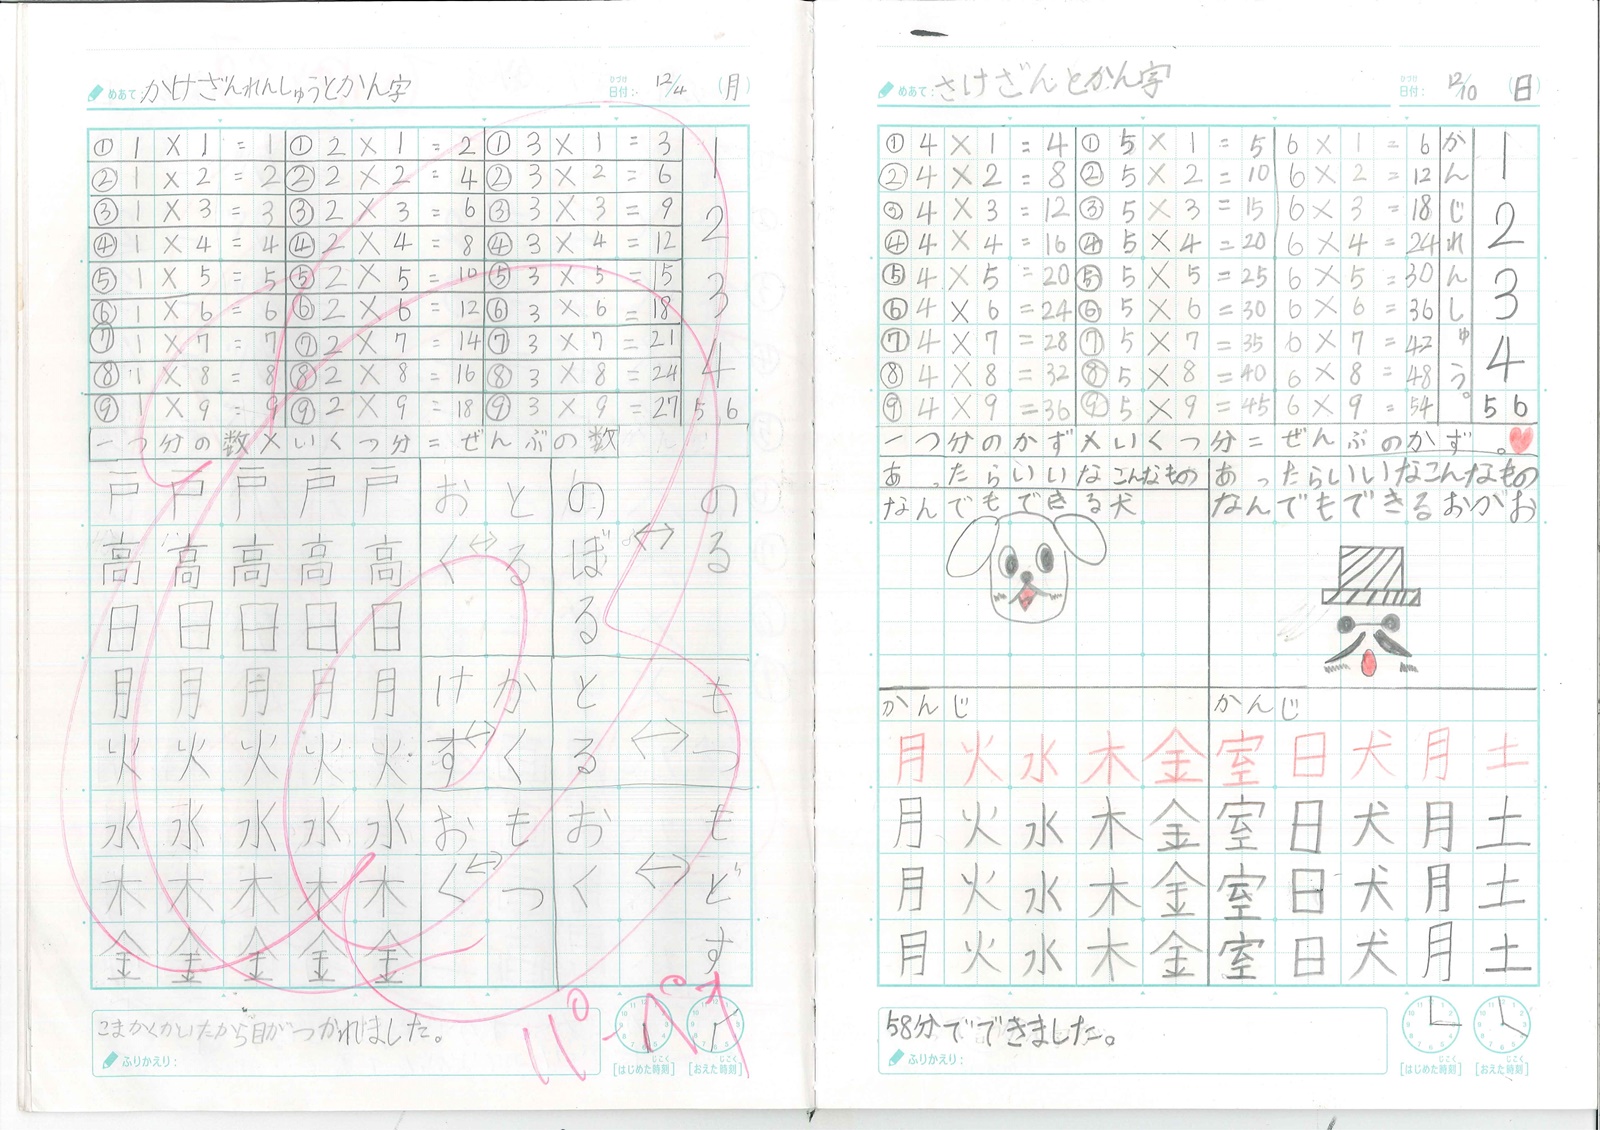 めあて：かけざんれんしゅうとかん字
ひづけ
日付：12/4 （月）
① 1 × 1 = 1 ① 2 × 1 = 2 ① 3 × 1 = 3
② 1 × 2 = 2 ② 2 × 2 = 4 ② 3 × 2 = 6
③ 1 × 3 = 3 ③ 2 × 3 = 6 ③ 3 × 3 = 9
④ 1 × 4 = 4 ④ 2 × 4 = 8 ④ 3 × 4 = 12
⑤ 1 × 5 = 5 ⑤ 2 × 5 = 10 ⑤ 3 × 5 = 15
⑥ 1 × 6 = 6 ⑥ 2 × 6 = 12 ⑥ 3 × 6 = 18
⑦ 1 × 7 = 7 ⑦ 2 × 7 = 14 ⑦ 3 × 7 = 21
⑧ 1 × 8 = 8 ⑧ 2 × 8 = 16 ⑧ 3 × 8 = 24
⑨ 1 × 9 = 9 ⑨ 2 × 9 = 18 ⑨ 3 × 9 = 27
1
2
3
4
5 6
一つ分の数×いくつ分=ぜんぶの数
のる↔のぼる
もつ↔とる
もどす↔おく
とる↔おく
かく↔けす
もつ↔おく
戸戸戸戸戸
高高高高高
日日日日日
月月月月月
火火火火火
水水水水水
木木木木木
金金金金金
こまかくかいたから目がつかれました。
ふりかえり：
じこく
[はじめた時刻]
じこく
[おえた時刻]
パーペキ
めあて：さけざんとかん字
ひづけ
日付：12/10 （日）
① 4 × 1 = 4 ① 5 × 1 = 5 6 × 1 = 6
② 4 × 2 = 8 ② 5 × 2 = 10 6 × 2 = 12
③ 4 × 3 = 12 ③ 5 × 3 = 15 6 × 3 = 18
④ 4 × 4 = 16 ④ 5 × 4 = 20 6 × 4 = 24
⑤ 4 × 5 = 20 ⑤ 5 × 5 = 25 6 × 5 = 30
⑥ 4 × 6 = 24 ⑥ 5 × 6 = 30 6 × 6 = 36
⑦ 4 × 7 = 28 ⑦ 5 × 7 = 35 6 × 7 = 42
⑧ 4 × 8 = 32 ⑧ 5 × 8 = 40 6 × 8 = 48
⑨ 4 × 9 = 36 ⑨ 5 × 9 = 45 6 × 9 = 54
かんじれんしゅう。
1
2
3
4
5 6
一つ分のかず×いくつ分=ぜんぶのかず。
あったらいいなこんなもの
なんでもできる犬
あったらいいなこんなもの
なんでもできるおがお
かんじ かんじ
月火水木金室日犬月土
月火水木金室日犬月土
月火水木金室日犬月土
月火水木金室日犬月土
58分でできました。
ふりかえり：
じこく
[はじめた時刻]
じこく
[おえた時刻]